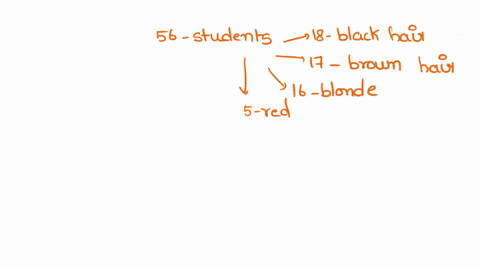 56 - students → 18 - black hair
17 - brown hair
16 - blonde
5 - red